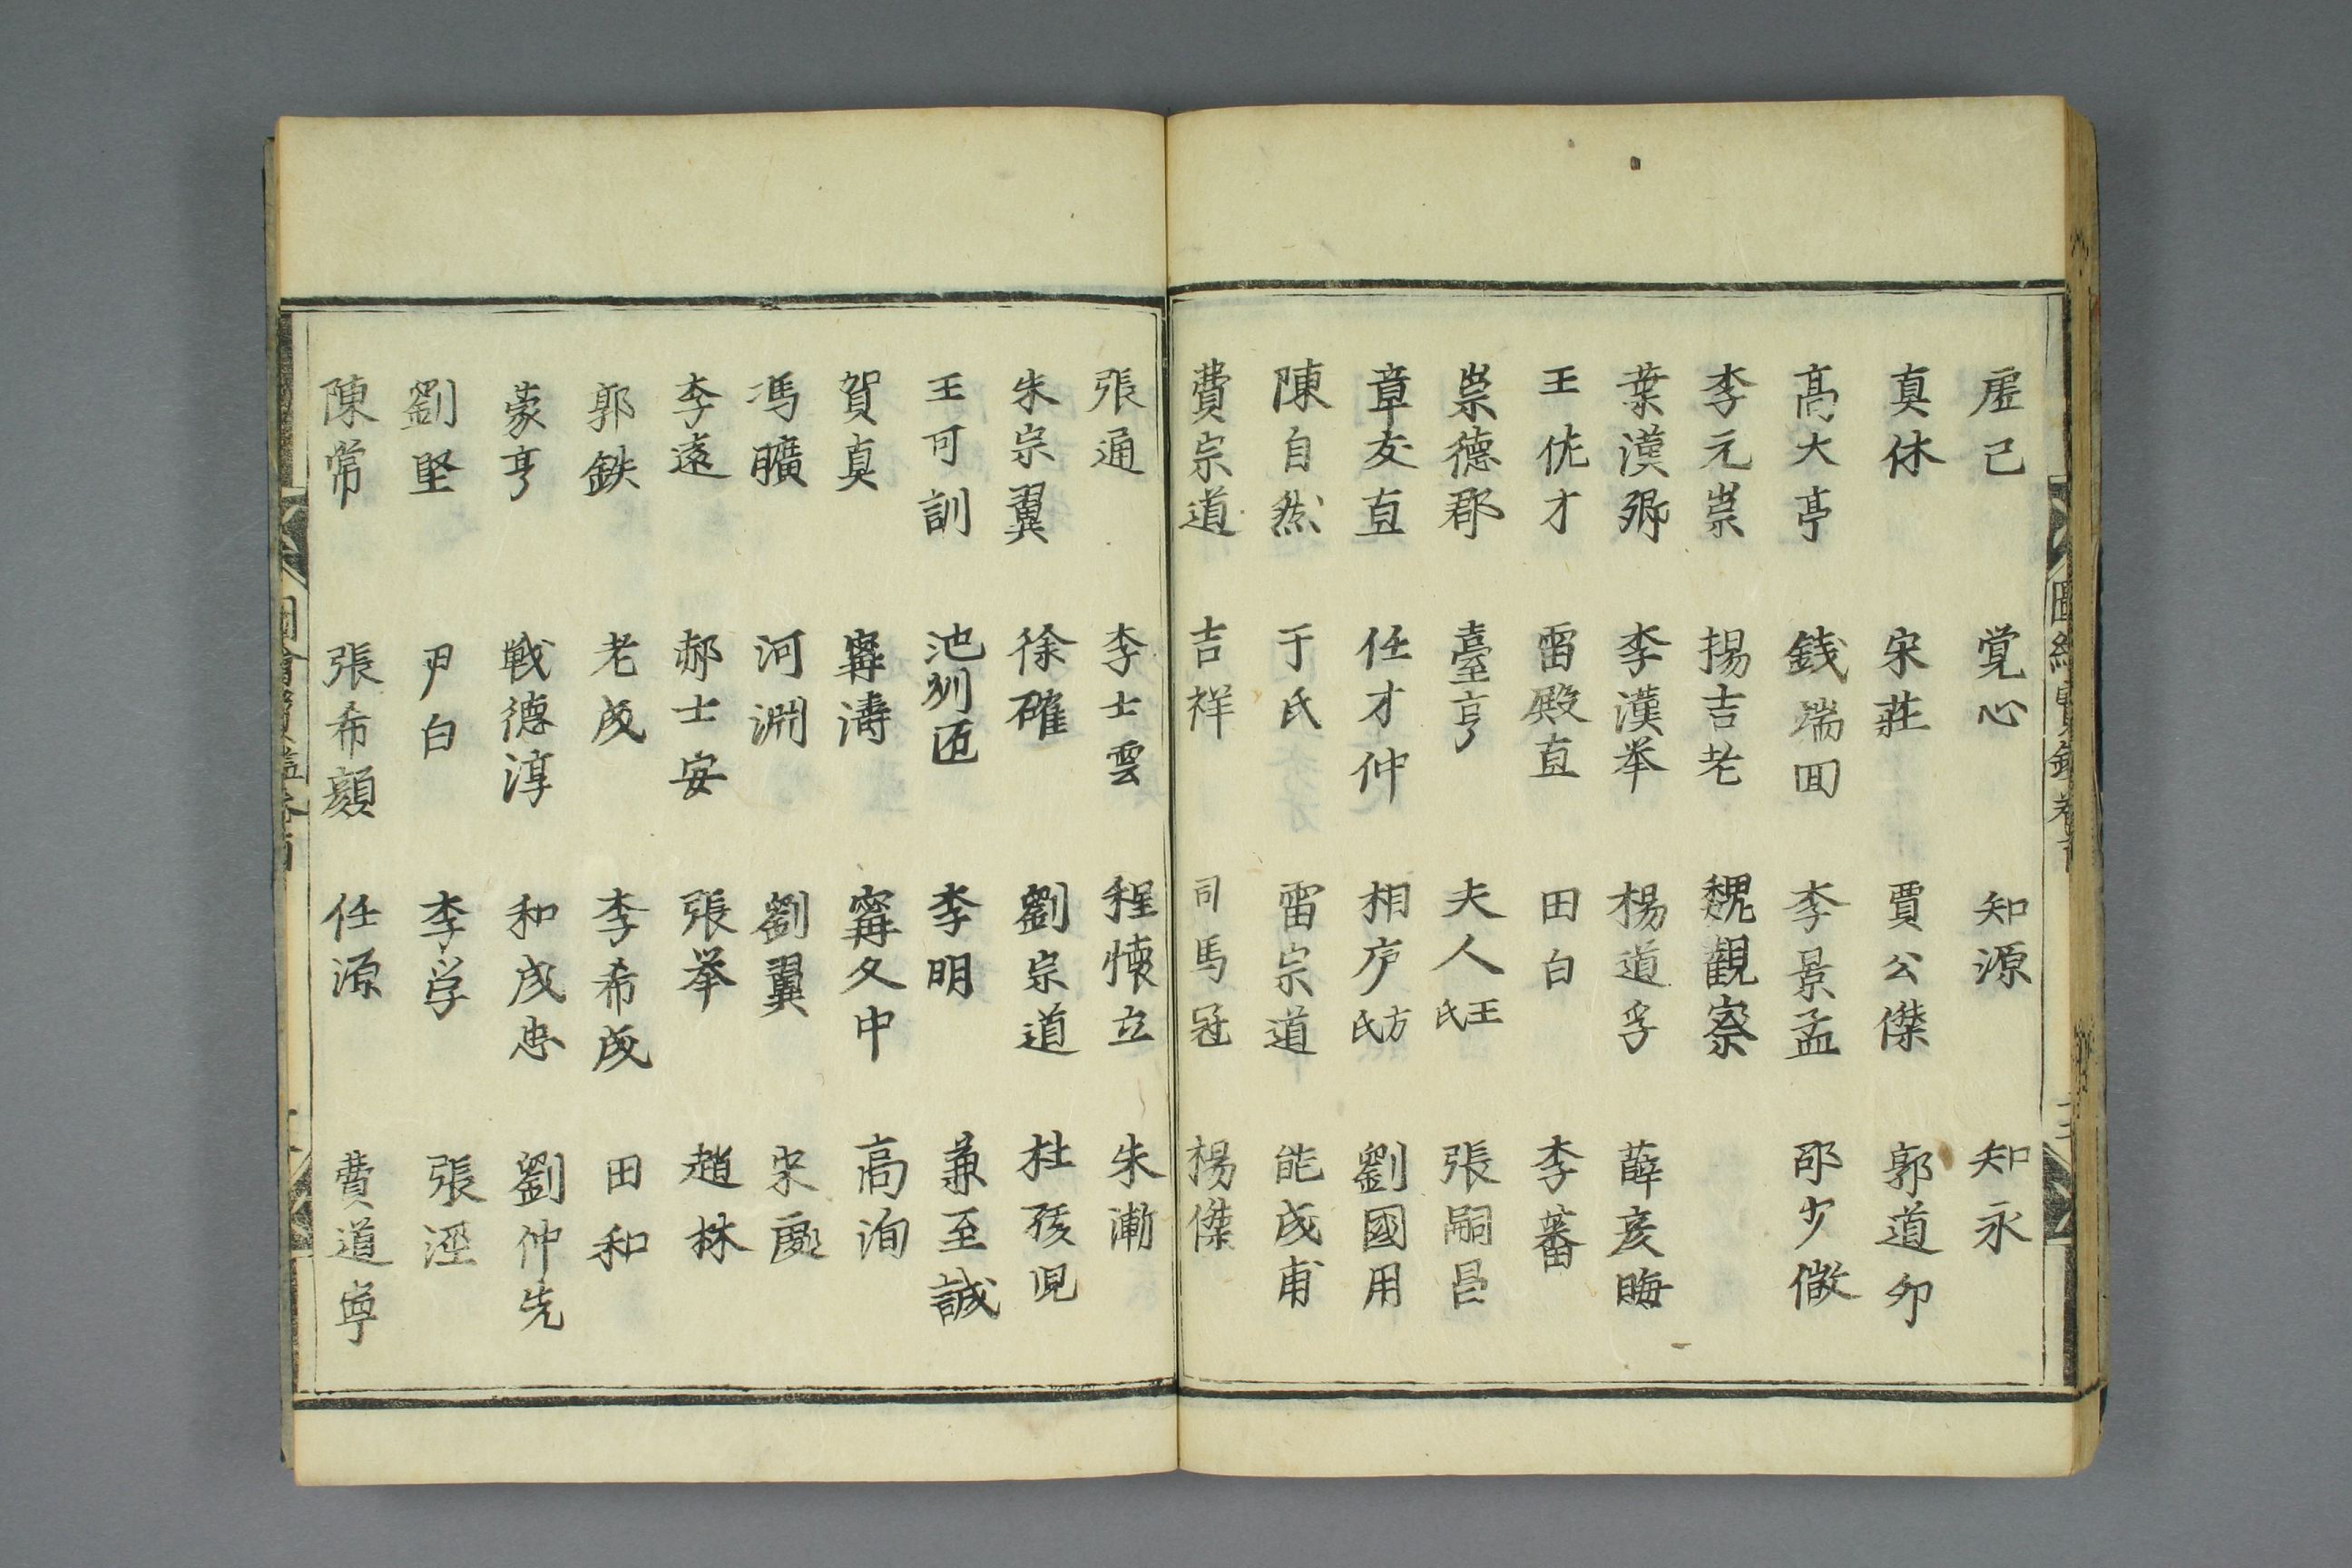 虚己 覚心 知源 知永
真休 宋莊 賈公傑 郭道卯
高大亭 銭端回 李景孟 邵少微
李元崇 揚吉老 魏觀察
葉漢卿 李漢举 楊道孚 薛彦晦
王佐才 雷殿直 田白 李蕃
崇德郡 臺亨 夫人王氏 張嗣昌
章友直 任才仲 相房方氏 劉國用
陳自然 于氏 雷宗道 能成甫
費宗道 吉祥 司馬冦 楊傑
張通 李士雲 程懐立 朱漸
朱宗翼 徐確 劉宗道 杜孩児
王可訓 池州匠 李明 兼至誠
賀真 寗濤 寗久中 高洵
馮曠 河淵 劉翼 宋處
李遠 郝士安 張举 趙林
郭鉄 老成 李希成 田和
蒙亨 戦德淳 和成忠 劉仲先
劉堅 尹白 李学 張涇
陳常 張希顔 任源 費道寧